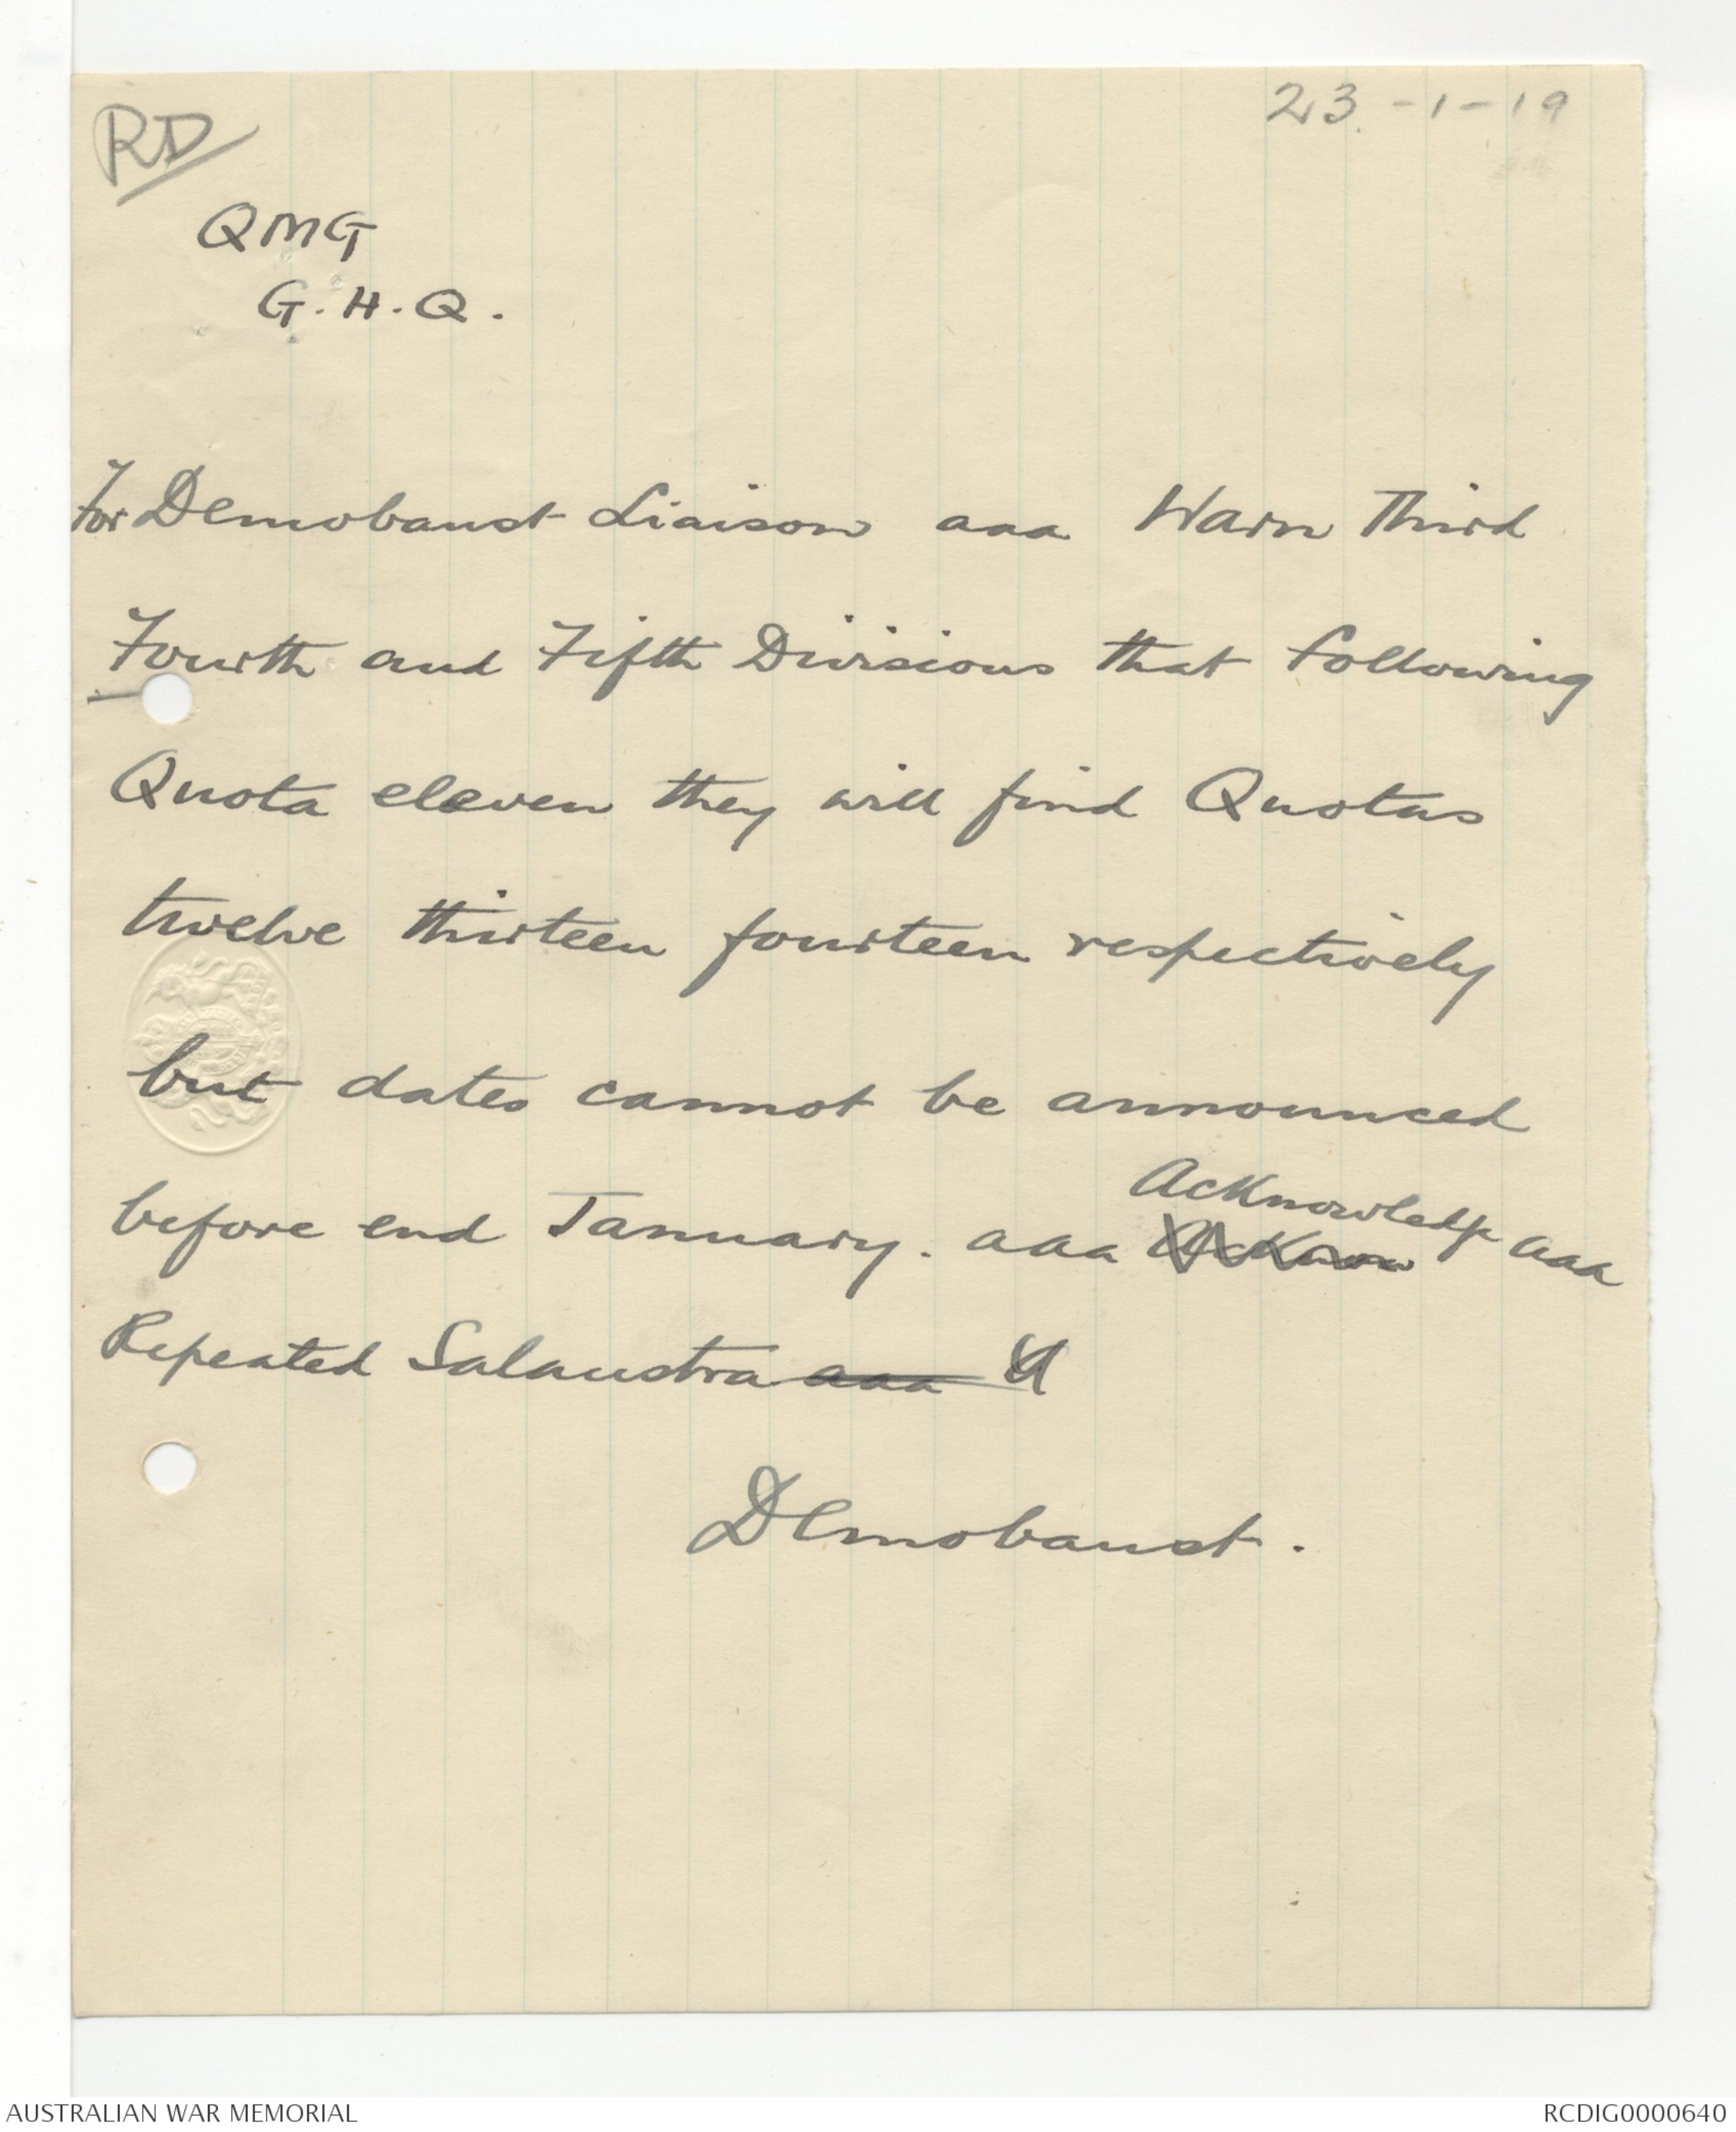 23.-1-19
RD
QMG
G.H.Q.
For Demobaust Liaison aaa Warn Third
Fourth and Fifth Divisions that following
Quota eleven they will find Quotas
twelve thirteen fourteen respectively
but dates cannot be announced
Acknowledge
before end January. aaa Acknow aaa
Repeated Salaustra aaa
Demobaust.
AUSTRALIAN WAR MEMORIAL
RCDIG0000640